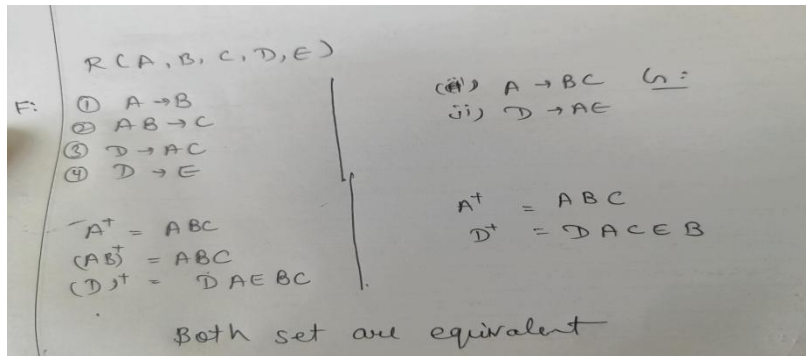 R(A, B, C, D, E)
F:
① A → B
② AB → C
③ D → AC
④ D → E
A⁺ = ABC
(AB)⁺ = ABC
(D)⁺ = DAEBC
A → BC G:
ii) D → AE
A⁺ = ABC
D⁺ = DACEB
Both set are equivalent